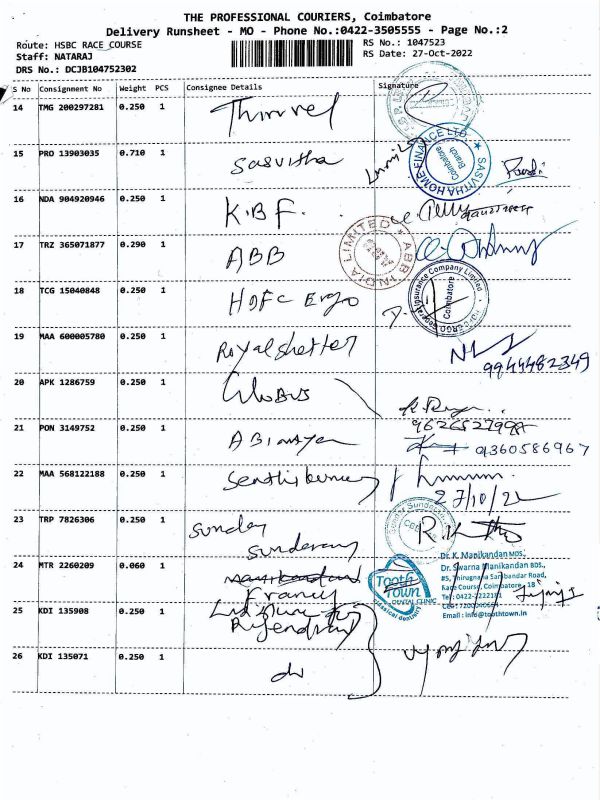 THE PROFESSIONAL COURIERS, Coimbatore
Delivery Runsheet - MO - Phone No.:0422-3505555 - Page No.:2
Route: HSBC RACE COURSE
RS No.: 1047523
Staff: NATARAJ
RS Date: 27-Oct-2022
DRS No.: DCJB104752302
S No Consignment No Weight PCS Consignee Details Signature
14 TMG 200297281 0.250 1
15 PRO 13903035 0.710 1 Sasvitha
SASVITHA HOME FINANCE LTD. Coimbatore Branch
16 NDA 904920946 0.250 1 K.B.F.
17 TRZ 365071877 0.290 1 ABB
ABB INDIA LIMITED
18 TCG 15040848 0.250 1 HDFC Ergo
ERGO General Insurance Company Limited Coimbatore
19 MAA 600005780 0.250 1 Royal shelter
9944482349
20 APK 1286759 0.250 1
21 PON 3149752 0.250 1
9360586967
22 MAA 568122188 0.250 1 Senthilkumar
27/10/22
23 TRP 7826306 0.250 1 Sunday
Sundaram
24 MTR 2260209 0.060 1
Francy
Tooth Town
DENTAL CLINIC
Dr. K. Manikandan MDS.,
Dr. Swarna Manikandan BDS.,
#5, Thirugnana Sambandar Road,
Race Course, Coimbatore - 18
Email : info@toothtown.in
25 KDI 135908 0.250 1
Rajendran
26 KDI 135071 0.250 1 do